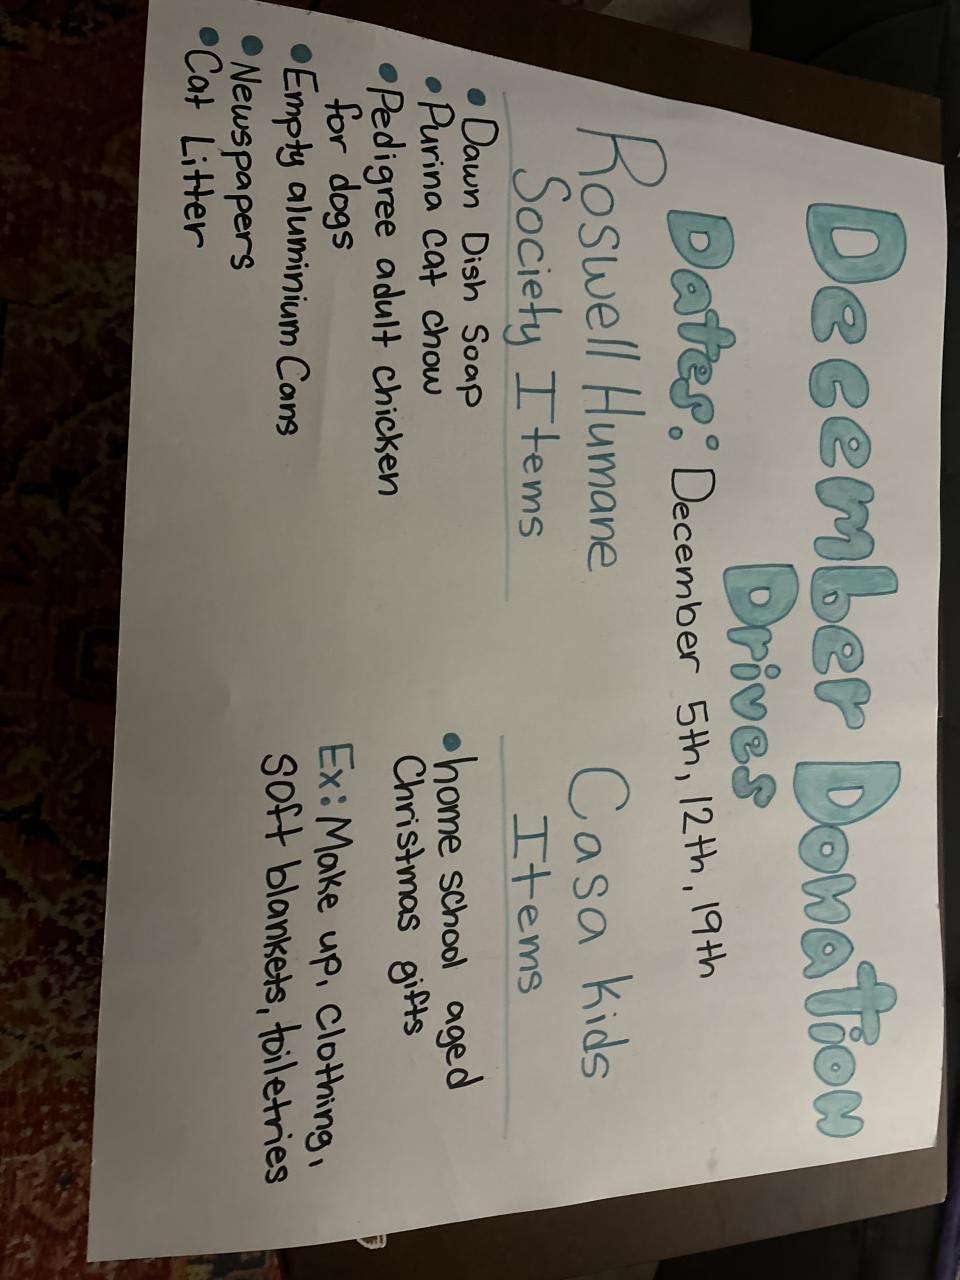 December Donation
Drives
Dates: December 5th, 12th, 19th
Roswell Humane
Society Items
• Dawn Dish Soap
• Purina cat chow
• Pedigree adult chicken
for dogs
• Empty aluminium Cans
• Newspapers
• Cat Litter
Casa kids
Items
• home school aged
Christmas gifts
Ex: Make up, clothing,
Soft blankets, toiletries